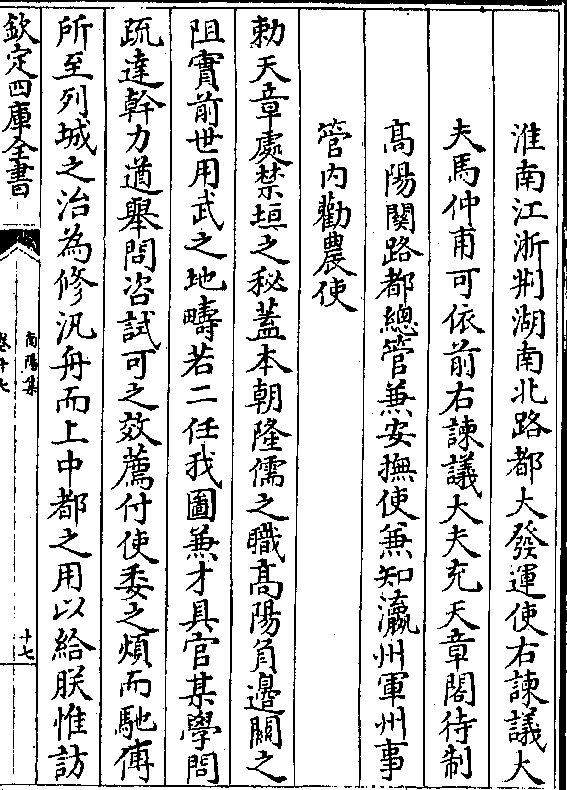 淮南江浙荆湖南北路都大發運使右諫議大
夫馬仲甫可依前右諫議大夫充天章閣待制
髙陽關路都總管兼安撫使兼知瀛州軍州事
管内勸農使
勅天章處禁垣之秘蓋本朝隆儒之職髙陽負邊關之
阻實前世用武之地疇若二任我圖兼才具官某學問
疏達幹力遒舉問咨試可之效薦付使委之煩而馳傳
所至列城之治為修汎舟而上中都之用以給朕惟訪
欽定四庫全書
南陽集
卷十七
十七